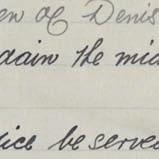 en of Denis
again the mid
ice be serve